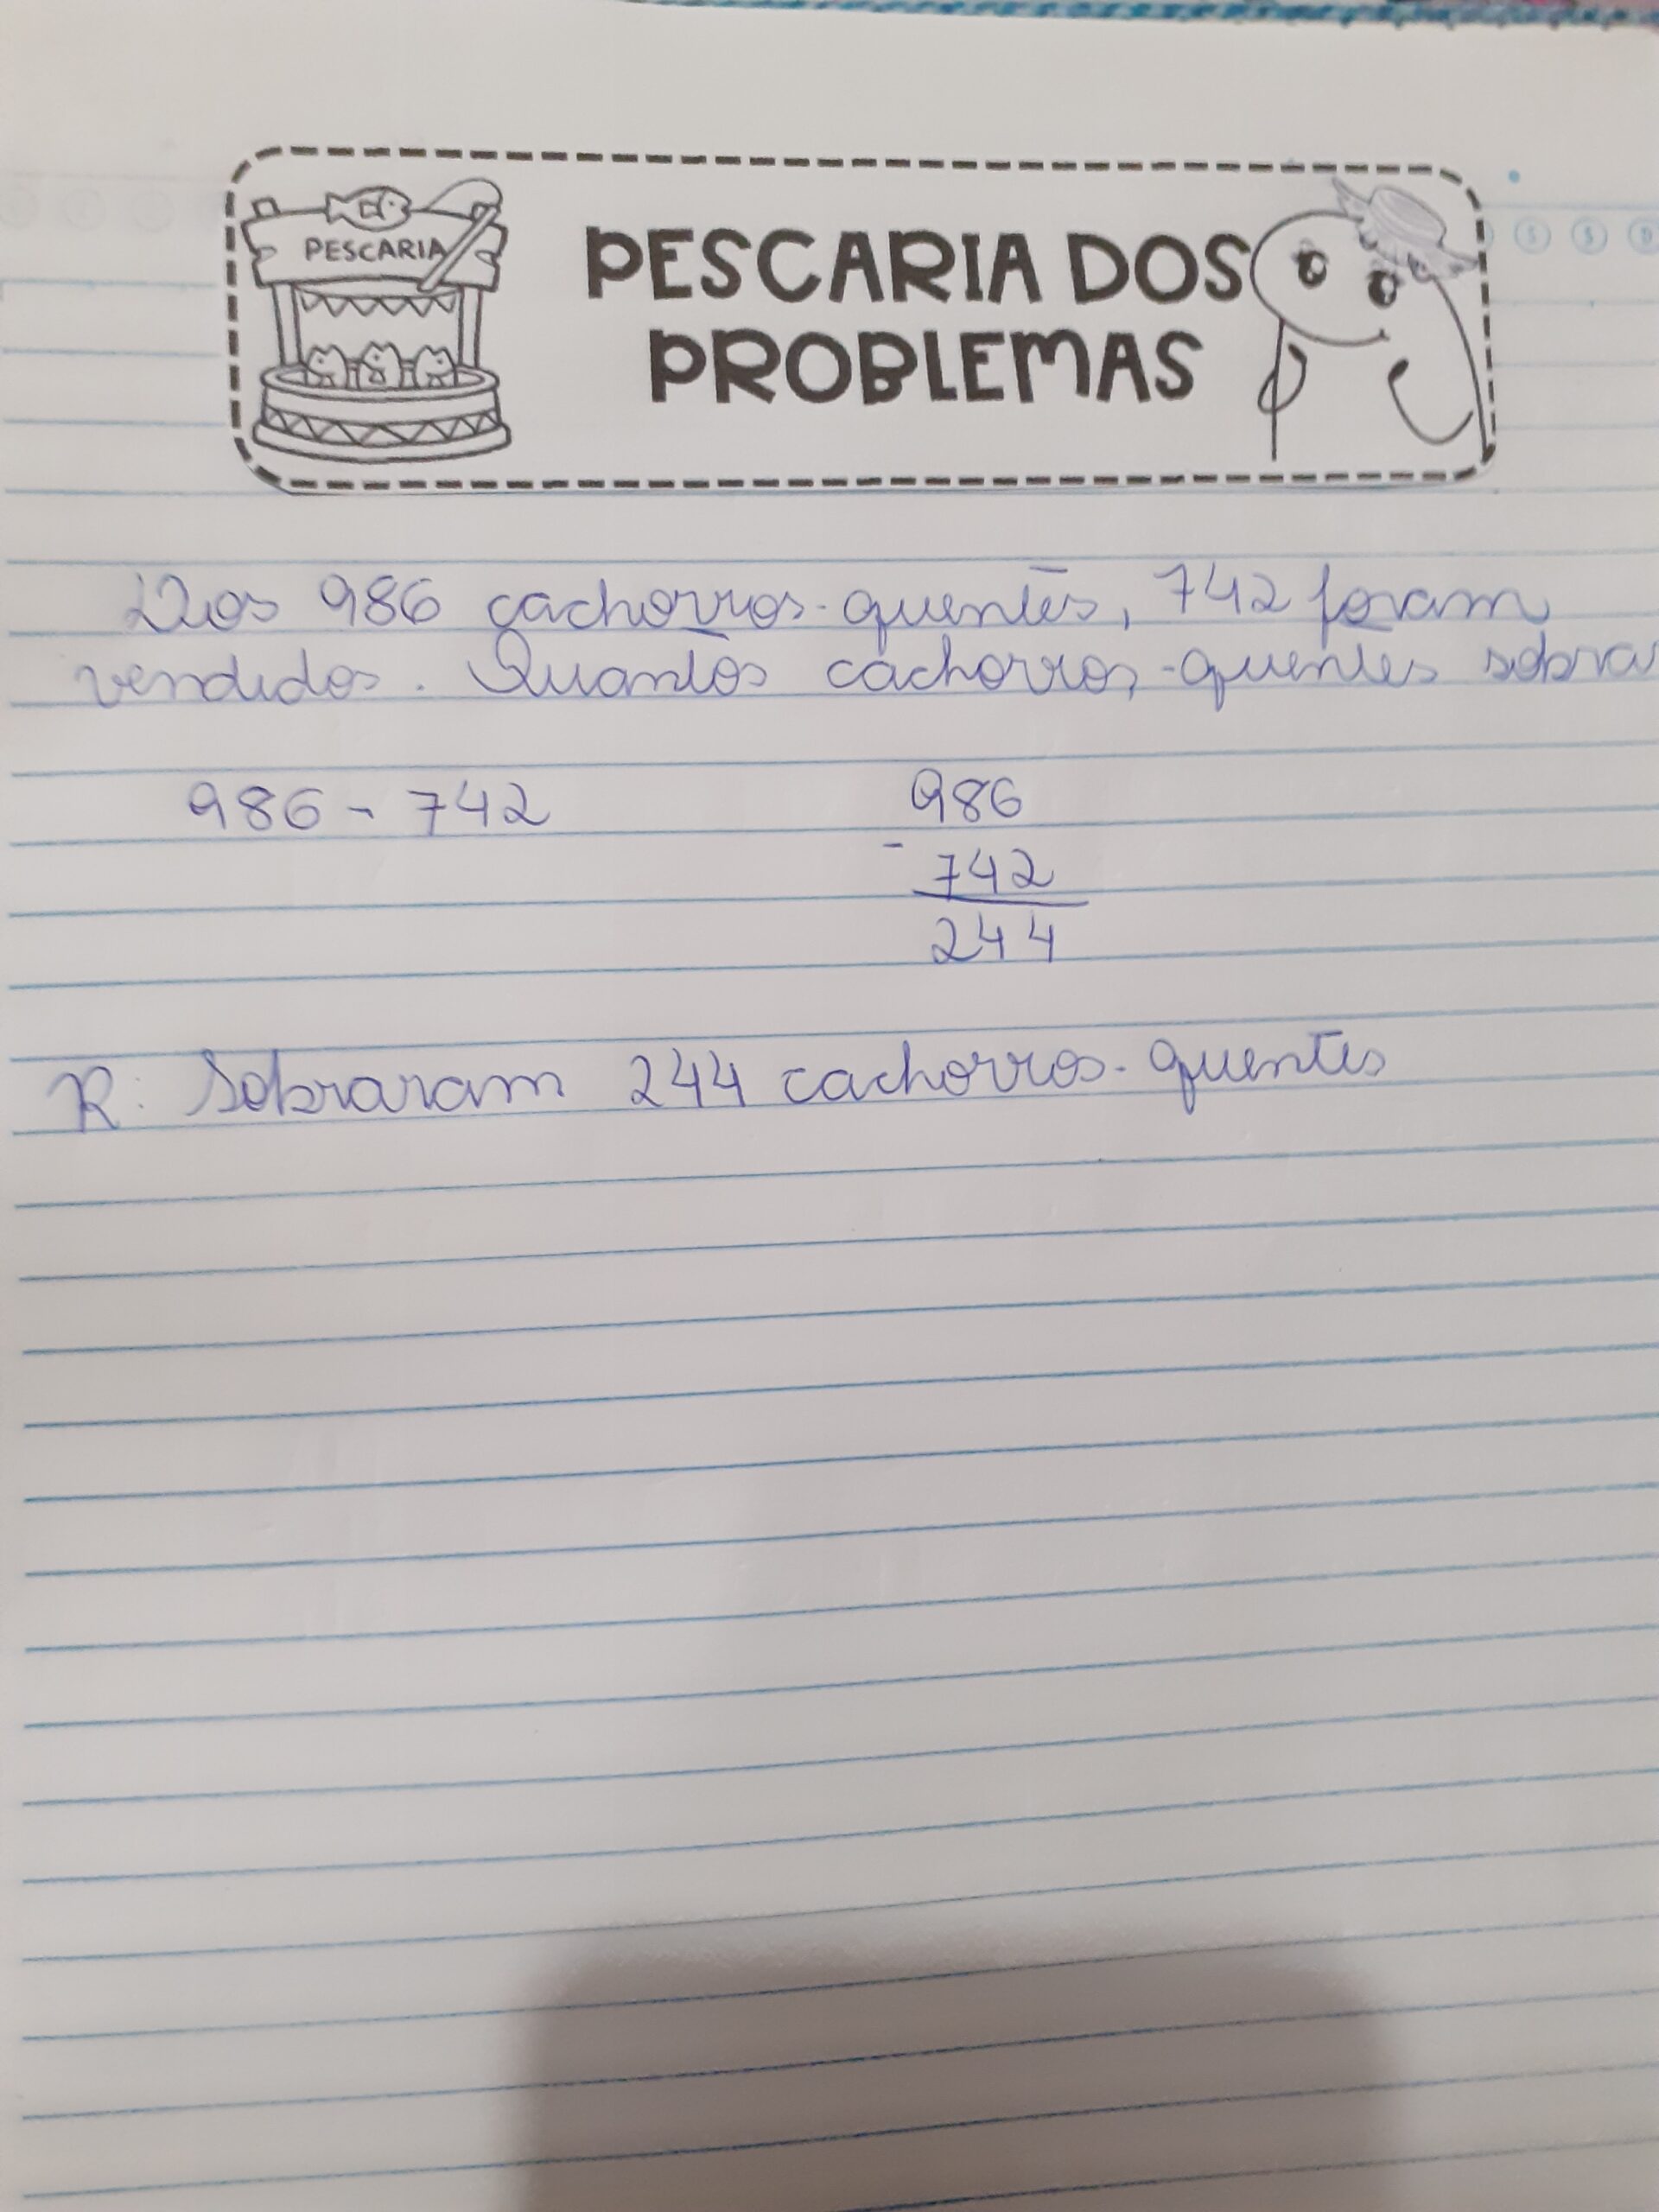 PESCARIA
PESCARIA DOS
PROBLEMAS
S S D
Dos 986 cachorros-quentes, 742 foram
vendidos. Quantos cachorros-quentes sobra
986 - 742
986
-
742
244
R: Sobraram 244 cachorros-quentes